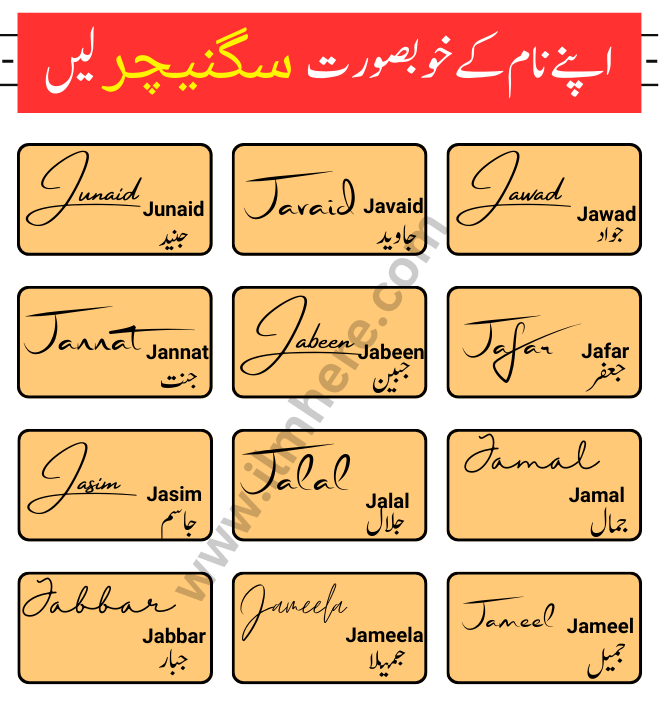 اپنے نام کے خوبصورت سگنیچر لیں
Junaid
Junaid
جنید
Javaid
Javaid
جاوید
Jawad
Jawad
جواد
Jannat
Jannat
جنت
Jabeen
Jabeen
جبین
Jafar
Jafar
جعفر
Jasim
Jasim
جاسم
Jalal
Jalal
جلال
Jamal
Jamal
جمال
Jabbar
Jabbar
جبار
Jameela
Jameela
جمہیلا
Jameel
Jameel
جمیل
www.ilmhere.com